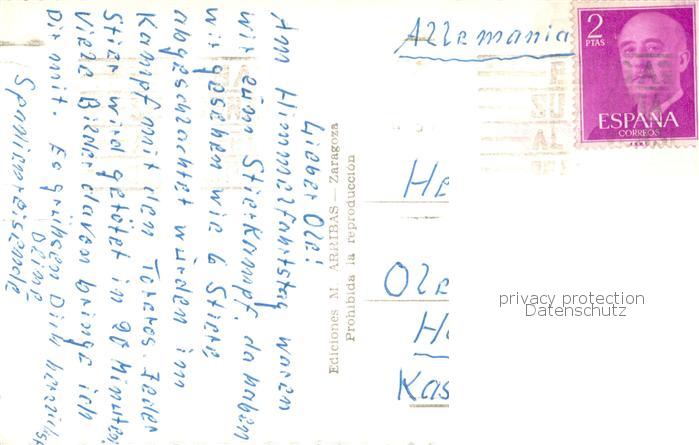 Lieber Ole!
Am Himmelfahrtstag waren
wir beim Stierkampf. da haben
wir gesehen wie 6 Stiere
abgeschlachtet wurden im
Kampf mit den Toreros. Jeder
Stier wird getötet in 20 Minuten.
Viele Bilder davon bringe ich
Dir mit. Es grüßen Dich herzlichst
Deine
Spanienreisende
Ediciones M. ARRIBAS – Zaragoza
Prohibida la reproducción
Allemania
2
PTAS
ESPAÑA
CORREOS
He
Ole
H
Kas
privacy protection
Datenschutz